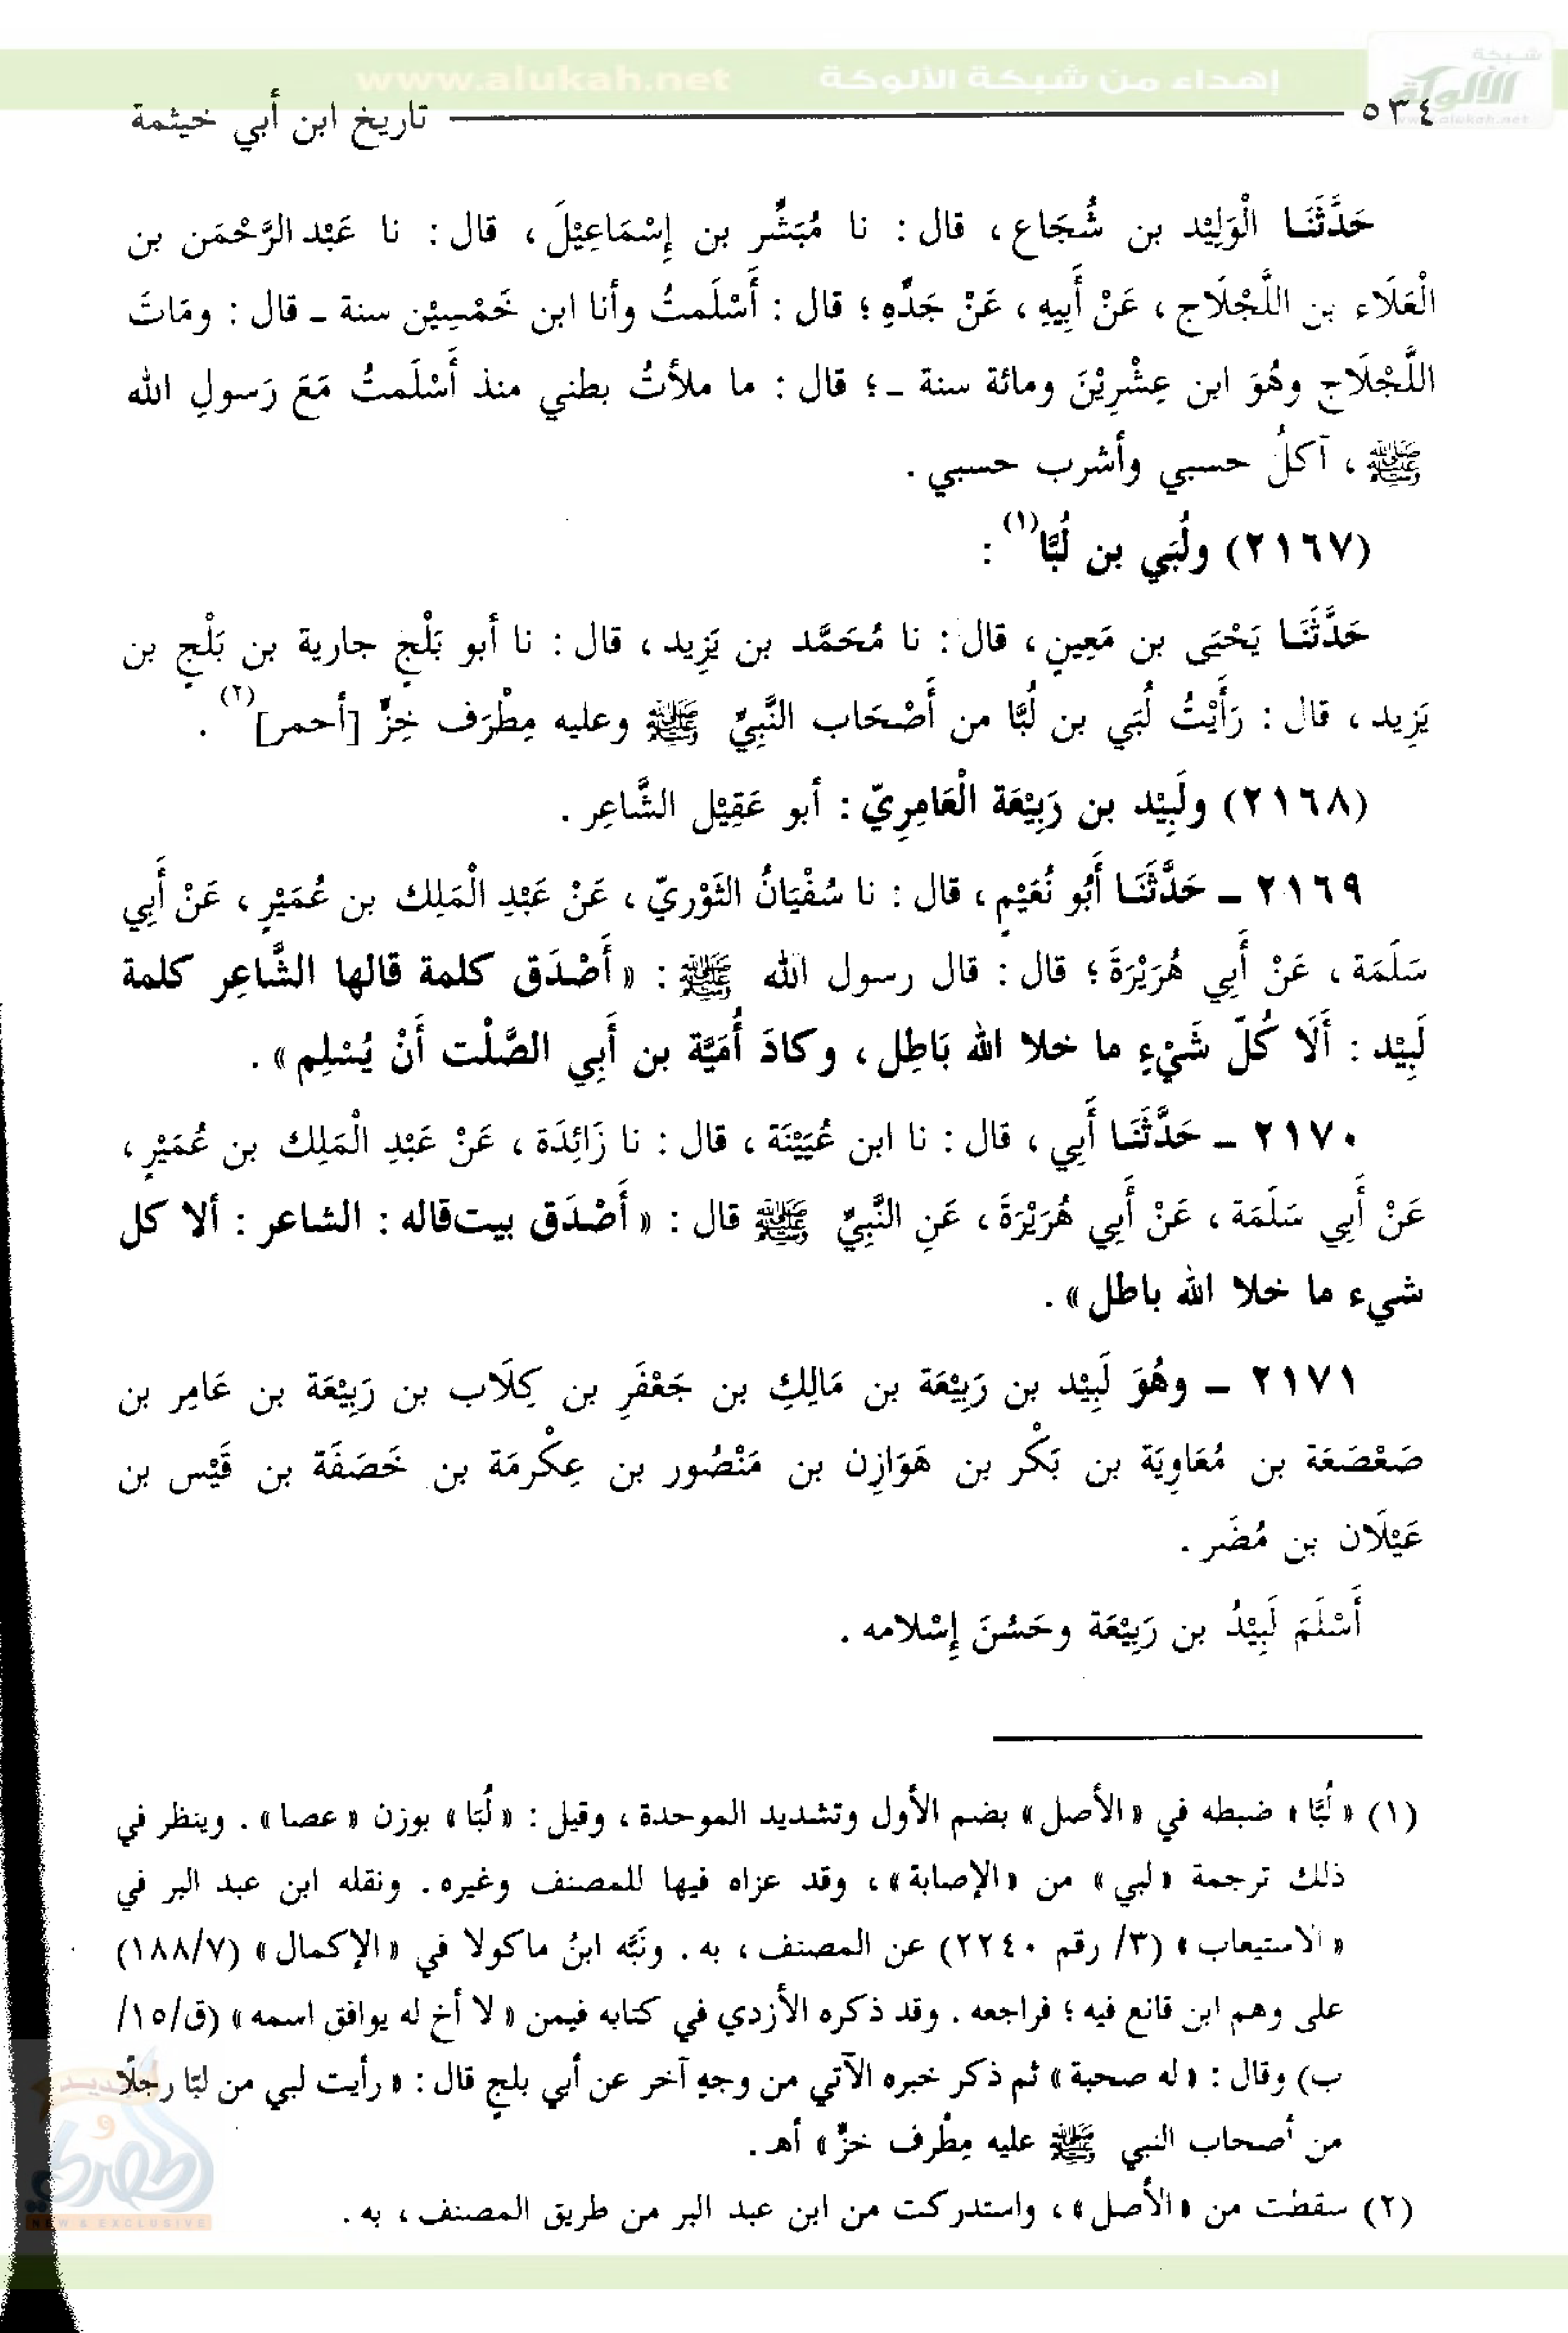 www.alukah.net إهداء من شبكة الألوكة شبكة الألوكة
٥٣٤ تاريخ ابن أبي خيثمة
حَدَّثَنَا الْوَلِيْد بن شُجَاع ، قال : نا مُبَشِّر بن إِسْمَاعِيْلَ ، قال : نا عَبْد الرَّحْمَن بن
الْعَلَاء بن اللَّجْلَاج ، عَنْ أَبِيهِ ، عَنْ جَدِّهِ ؛ قال : أَسْلَمتُ وأنا ابن خَمْسِيْن سنة ـ قال : ومَاتَ
اللَّجْلَاج وهُوَ ابن عِشْرِيْنَ ومائة سنة ـ ؛ قال : ما ملأتُ بطني منذ أَسْلَمتُ مَعَ رَسولِ الله
ﷺ ، آكلُ حسبي وأشرب حسبي .
(٢١٦٧) ولُبَي بن لُبَّا(١) :
حَدَّثَنَا يَحْيَى بن مَعِينٍ ، قال : نا مُحَمَّد بن يَزِيد ، قال : نا أبو بَلْجٍ جارية بن بَلْجٍ بن
يَزِيد ، قال : رَأَيْتُ لُبَي بن لُبَّا من أَصْحَاب النَّبِيِّ ﷺ وعليه مِطْرَف خِزٍّ [أحمر](٢) .
(٢١٦٨) ولَبِيْد بن رَبِيْعَة الْعَامِرِيّ : أبو عَقِيْل الشَّاعِر .
٢١٦٩ ـ حَدَّثَنَا أَبُو نُعَيْمٍ ، قال : نا سُفْيَانُ الثَوْريّ ، عَنْ عَبْدِ الْمَلِك بن عُمَيْرٍ ، عَنْ أَبِي
سَلَمَة ، عَنْ أَبِي هُرَيْرَةَ ؛ قال : قال رسول الله ﷺ : «أَصْدَق كلمة قالها الشَّاعِر كلمة
لَبِيْد : أَلَا كُلّ شَيْءٍ ما خلا الله بَاطِل ، وكادَ أُمَيَّة بن أَبِي الصَّلْت أَنْ يُسْلِم» .
٢١٧٠ ـ حَدَّثَنَا أَبِي ، قال : نا ابن عُيَيْنَة ، قال : نا زَائِدَة ، عَنْ عَبْدِ الْمَلِك بن عُمَيْرٍ ،
عَنْ أَبِي سَلَمَة ، عَنْ أَبِي هُرَيْرَةَ ، عَنِ النَّبِيِّ ﷺ قال : «أَصْدَق بيت قاله : الشاعر : ألا كل
شيء ما خلا الله باطل» .
٢١٧١ ـ وهُوَ لَبِيْد بن رَبِيْعَة بن مَالِكِ بن جَعْفَرِ بن كِلَاب بن رَبِيْعَة بن عَامِر بن
صَعْصَعَة بن مُعَاوِيَة بن بَكْر بن هَوَازِن بن مَنْصُور بن عِكْرمَة بن خَصَفَة بن قَيْس بن
عَيْلَان بن مُضَر .
أَسْلَمَ لَبِيْدُ بن رَبِيْعَة وحَسُنَ إِسْلامه .
(١) «لُبَّا» ضبطه في «الأصل» بضم الأول وتشديد الموحدة ، وقيل : «لُبَا» بوزن «عصا» . وينظر في
ذلك ترجمة «لبي» من «الإصابة» ، وقد عزاه فيها للمصنف وغيره . ونقله ابن عبد البر في
«الاستيعاب» (٣/ رقم ٢٢٤٠) عن المصنف ، به . ونَبَّه ابنُ ماكولا في «الإكمال» (٧/١٨٨)
على وهم ابن قانع فيه ؛ فراجعه . وقد ذكره الأزدي في كتابه فيمن «لا أخ له يوافق اسمه» (ق/١٥/
ب) وقال : «له صحبة» ثم ذكر خبره الآتي من وجهٍ آخر عن أبي بلجٍ قال : «رأيت لبي من لبّا رجلًا
من أصحاب النبي ﷺ عليه مِطْرف خزٍّ» أهـ .
(٢) سقطت من «الأصل» ، واستدركت من ابن عبد البر من طريق المصنف ، به .
NEW & EXCLUSIVE